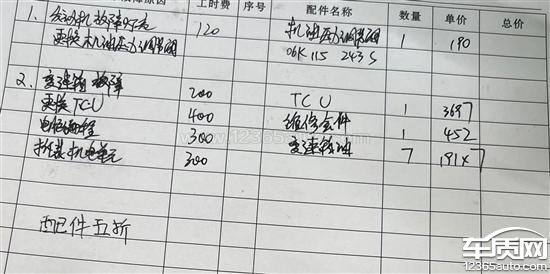 故障原因 工时费 序号 配件名称 数量 单价 总价
1、发动机故障灯亮 120 机油压力调节阀 1 190
更换机油压力调节阀 06K 115 243 S
2、变速箱故障 200 TCU 1 3697
更换TCU 400 维修套件 1 452
电脑编程 300 变速箱油 7 191×7
拆装机电单元 300
配件五折
www.12365auto.com
车质网
12365auto.com